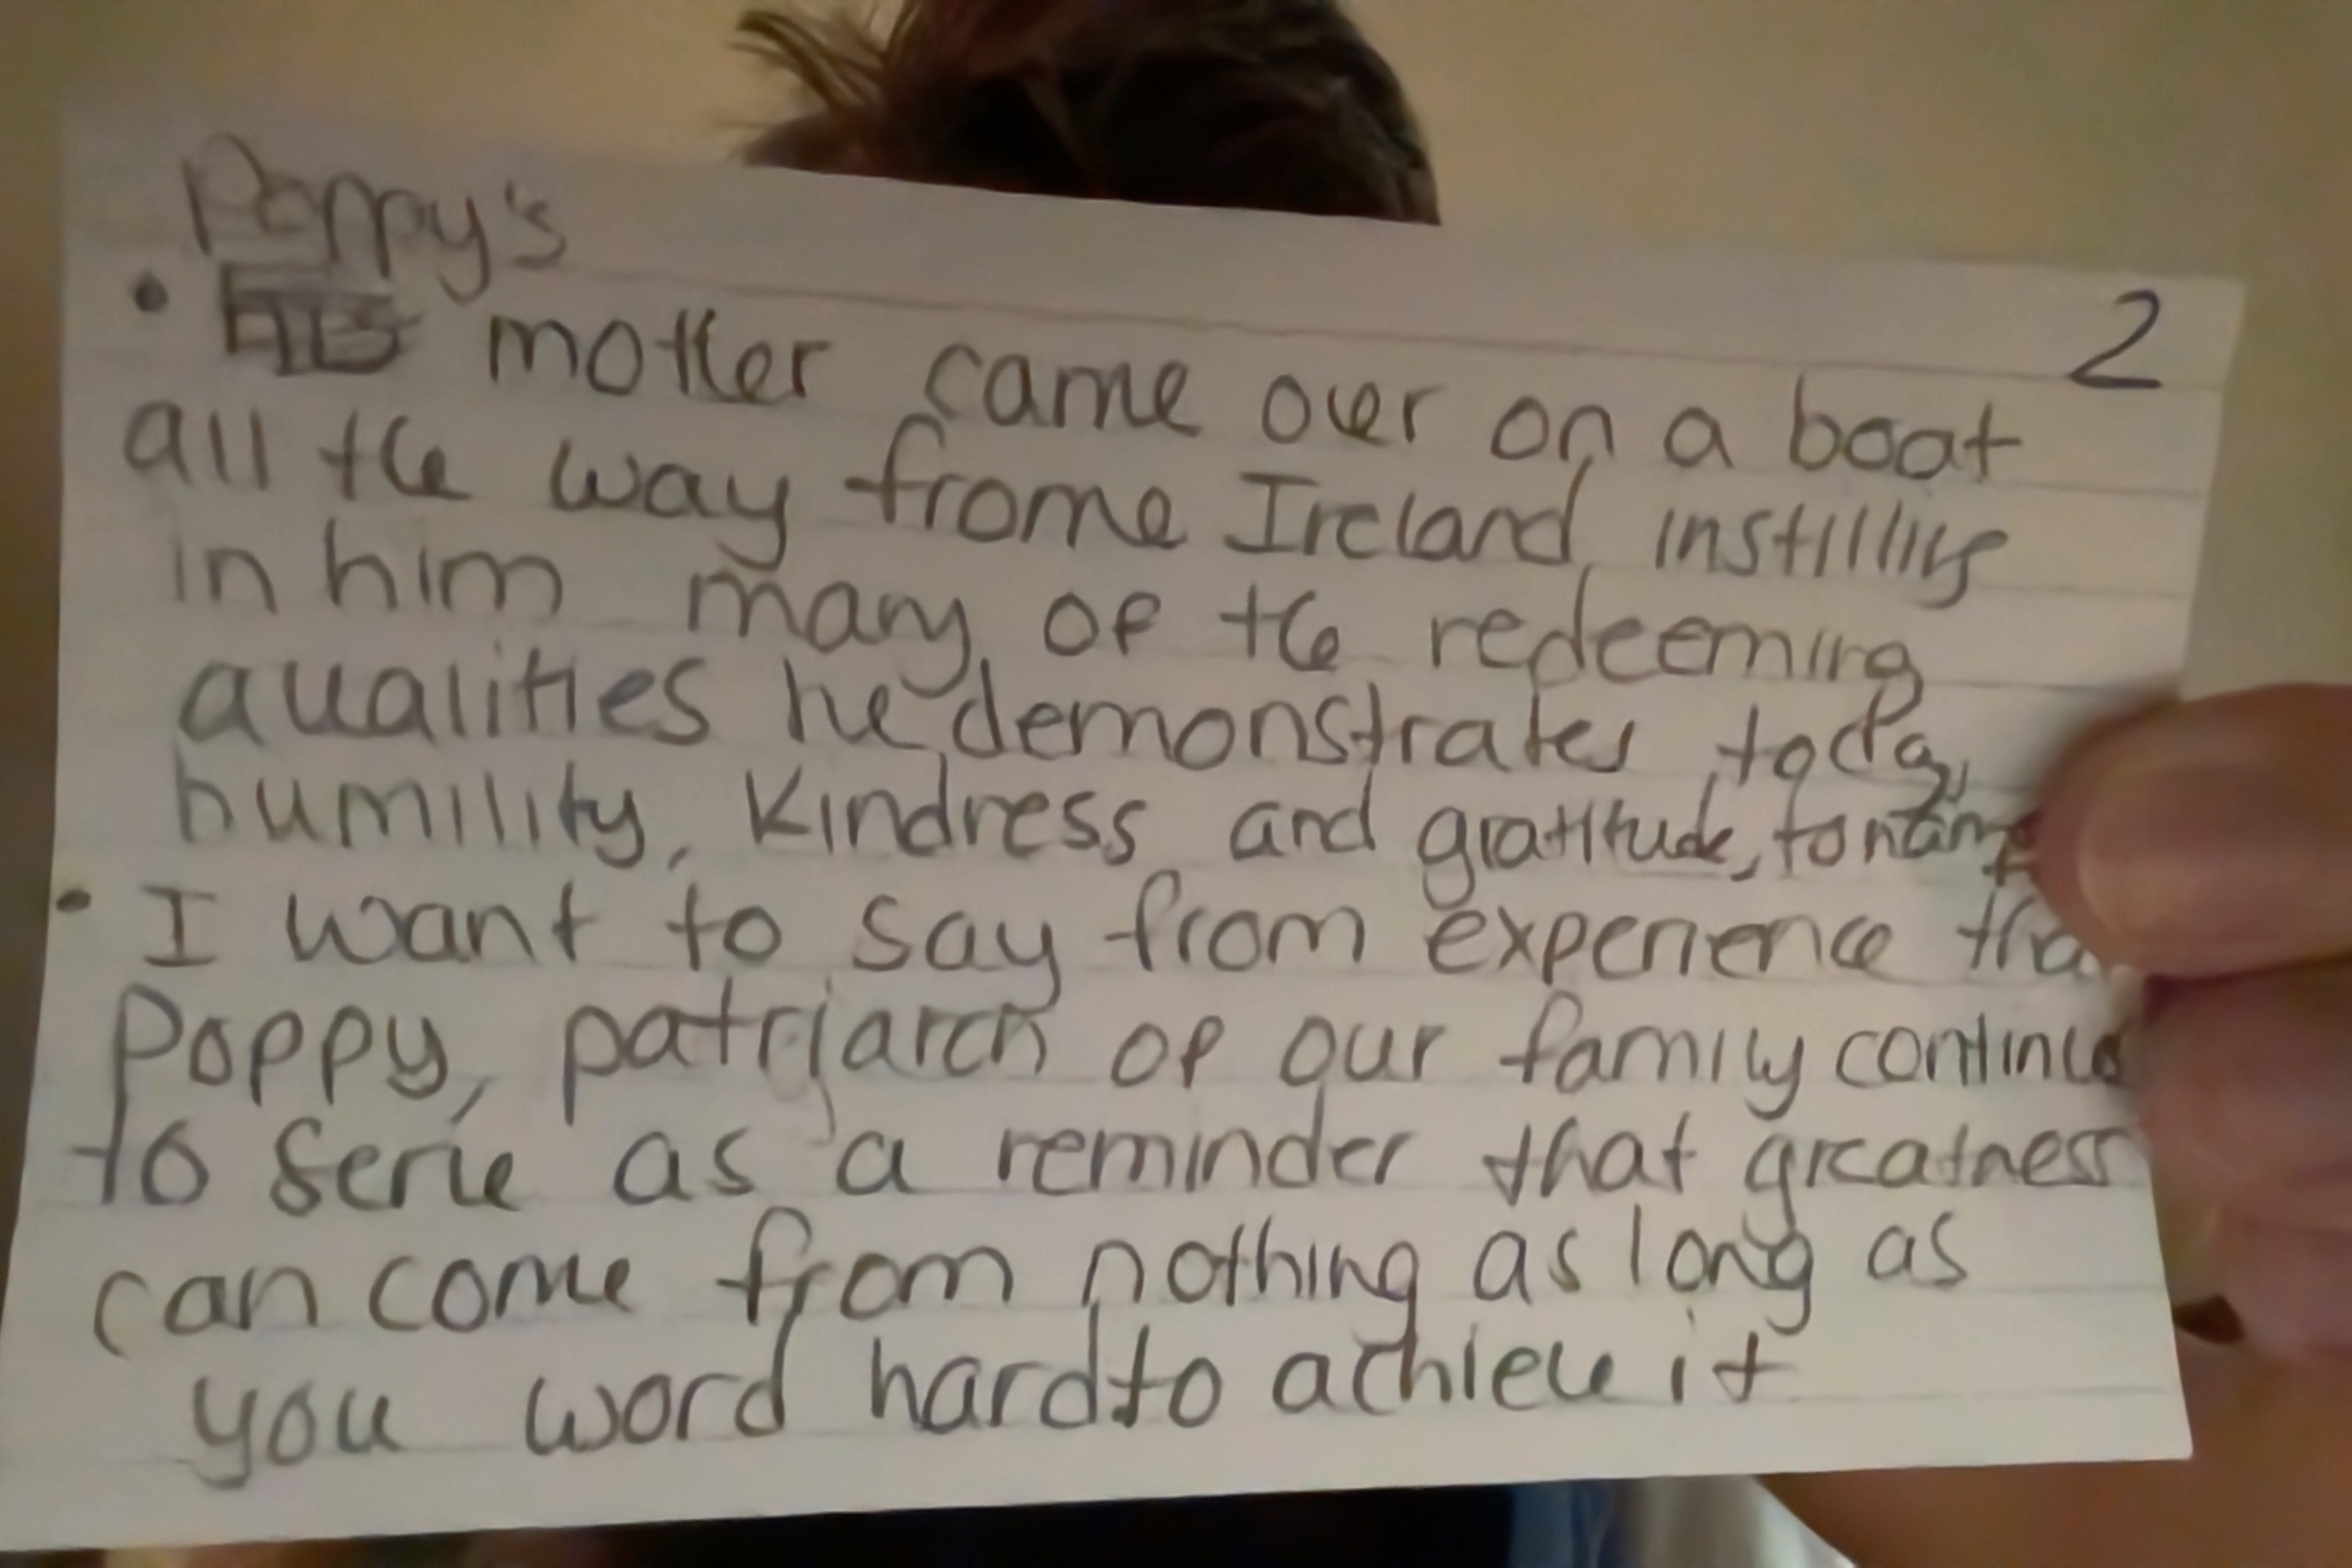 Poppy's
2
• mother came over on a boat
all the way frome Ireland, instilling
in him many of the redeeming
qualities he demonstrates today,
humility, kindness and gratitude, to name
• I want to say from experience tha
Poppy, patriarch of our family continues
to serve as a reminder that greatness
can come from nothing as long as
you word hard to achieve it